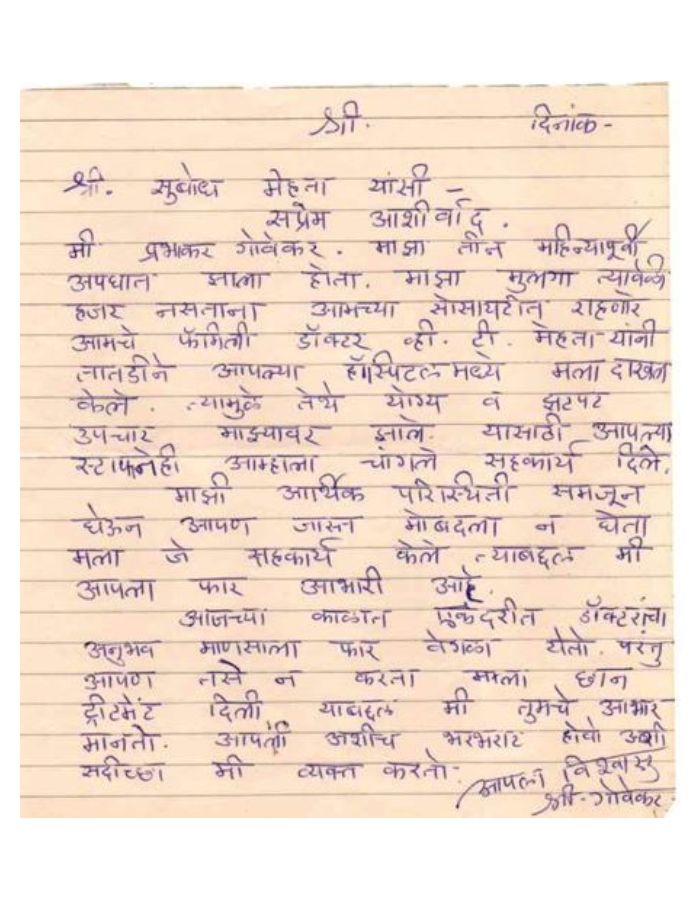 श्री. दिनांक-
श्री. सुबोध मेहता यांसी -
सप्रेम आशीर्वाद.
मी प्रभाकर गोवेकर. माझा तीन महिन्यापूर्वी
अपघात झाला होता. माझा मुलगा त्यावेळी
हजर नसताना आमच्या सोसायटीत राहणारे
आमचे फॅमिली डॉक्टर व्ही. टी. मेहता यांनी
तातडीने आपल्या हॉस्पिटल मध्ये मला दाखल
केले. त्यामुळे तेथे योग्य व झटपट
उपचार माझ्यावर झाले. यासाठी आपल्या
स्टाफनेही आम्हाला चांगले सहकार्य दिले.
माझी आर्थिक परिस्थिती समजून
घेऊन आपण जास्त मोबदला न घेता
मला जे सहकार्य केले त्याबद्दल मी
आपला फार आभारी आहे.
आजच्या काळात एकंदरीत डॉक्टरांचा
अनुभव माणसाला फार वेगळा येतो. परंतु
आपण तसे न करता मला छान
ट्रीटमेंट दिली याबद्दल मी तुमचे आभार
मानतो. आपली अशीच भरभराट होवो अशी
सदीच्छा मी व्यक्त करतो.
आपला विश्वासु
श्री. गोवेकर